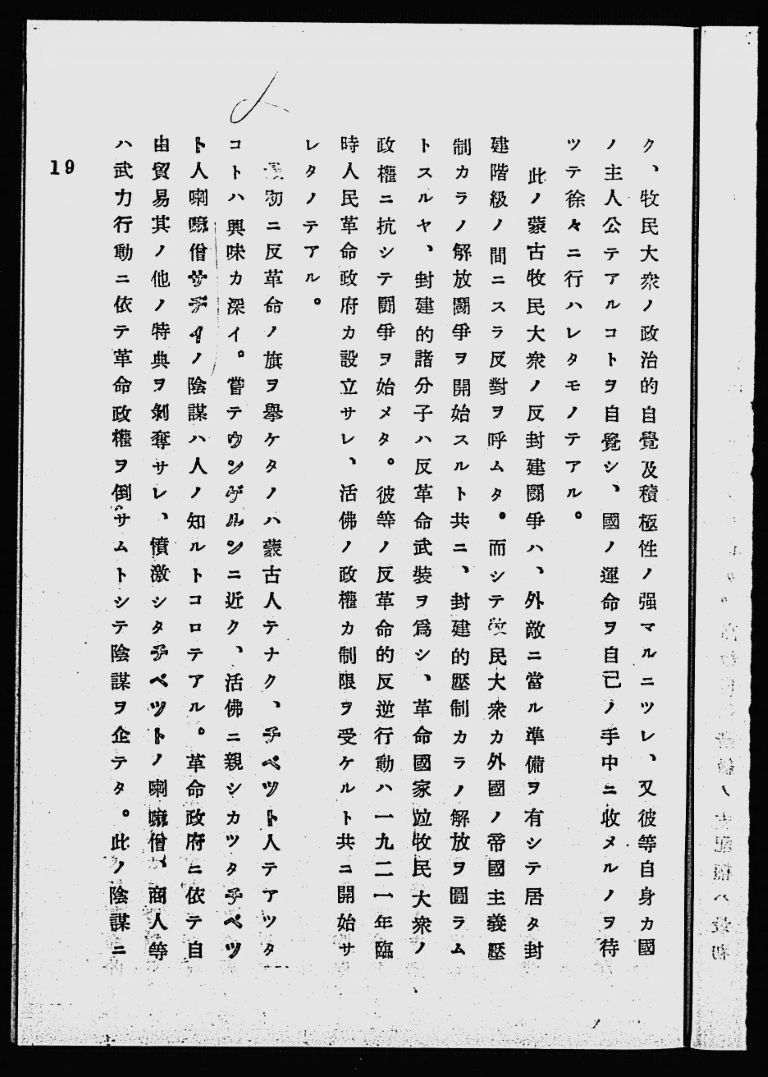 ク、牧民大衆ノ政治的自覺及積極性ノ强マルニツレ、又彼等自身カ國
ノ主人公テアルコトヲ自覺シ、國ノ運命ヲ自己ノ手中ニ收メルノヲ待
ツテ徐々ニ行ハレタモノテアル。
此ノ蒙古牧民大衆ノ反封建鬪爭ハ、外敵ニ當ル準備ヲ有シテ居タ封
建階級ノ間ニスラ反對ヲ呼ムタ。而シテ牧民大衆カ外國ノ帝國主義壓
制カラノ解放鬪爭ヲ開始スルト共ニ、封建的壓制カラノ解放ヲ圖ラム
トスルヤ、封建的諸分子ハ反革命武裝ヲ爲シ、革命國家竝牧民大衆ノ
政權ニ抗シテ鬪爭ヲ始メタ。彼等ノ反革命的反逆行動ハ一九二一年臨
時人民革命政府カ設立サレ、活佛ノ政權カ制限ヲ受ケルト共ニ開始サ
レタノテアル。
最初ニ反革命ノ旗ヲ擧ケタノハ蒙古人テナク、チベツト人テアツタ
コトハ興味カ深イ。嘗テウンゲルンニ近ク、活佛ニ親シカツタチベツ
ト人喇嘛僧サヂイノ陰謀ハ人ノ知ルトコロテアル。革命政府ニ依テ自
由貿易其ノ他ノ特典ヲ剝奪サレ、憤激シタチベツトノ喇嘛僧、商人等
ハ武力行動ニ依テ革命政權ヲ倒サムトシテ陰謀ヲ企テタ。此ノ陰謀ニ
19